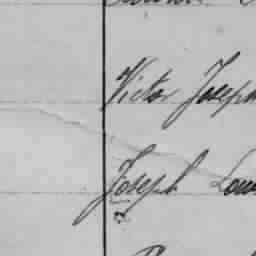 Victor Joseph
Joseph Lou